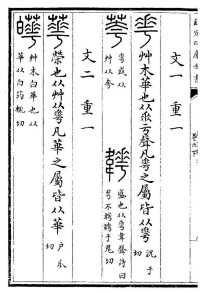 文一 重一
𠌶艸木華也从𠂹亏聲凡𠌶之屬皆从𠌶況于切
𠌶或从艸从夸
盛也从𠌶韋聲詩曰
萼不韡韡于鬼切
文二 重一
華榮也从艸从𠌶凡華之屬皆从華戶瓜切
艸木白華也从
華从白筠輒切